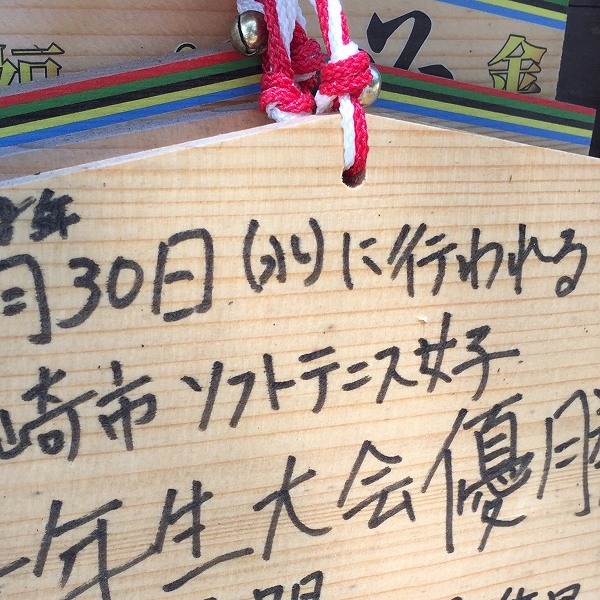 金
年
月30日(水)に行われる
崎市ソフトテニス女子
年生大会優勝